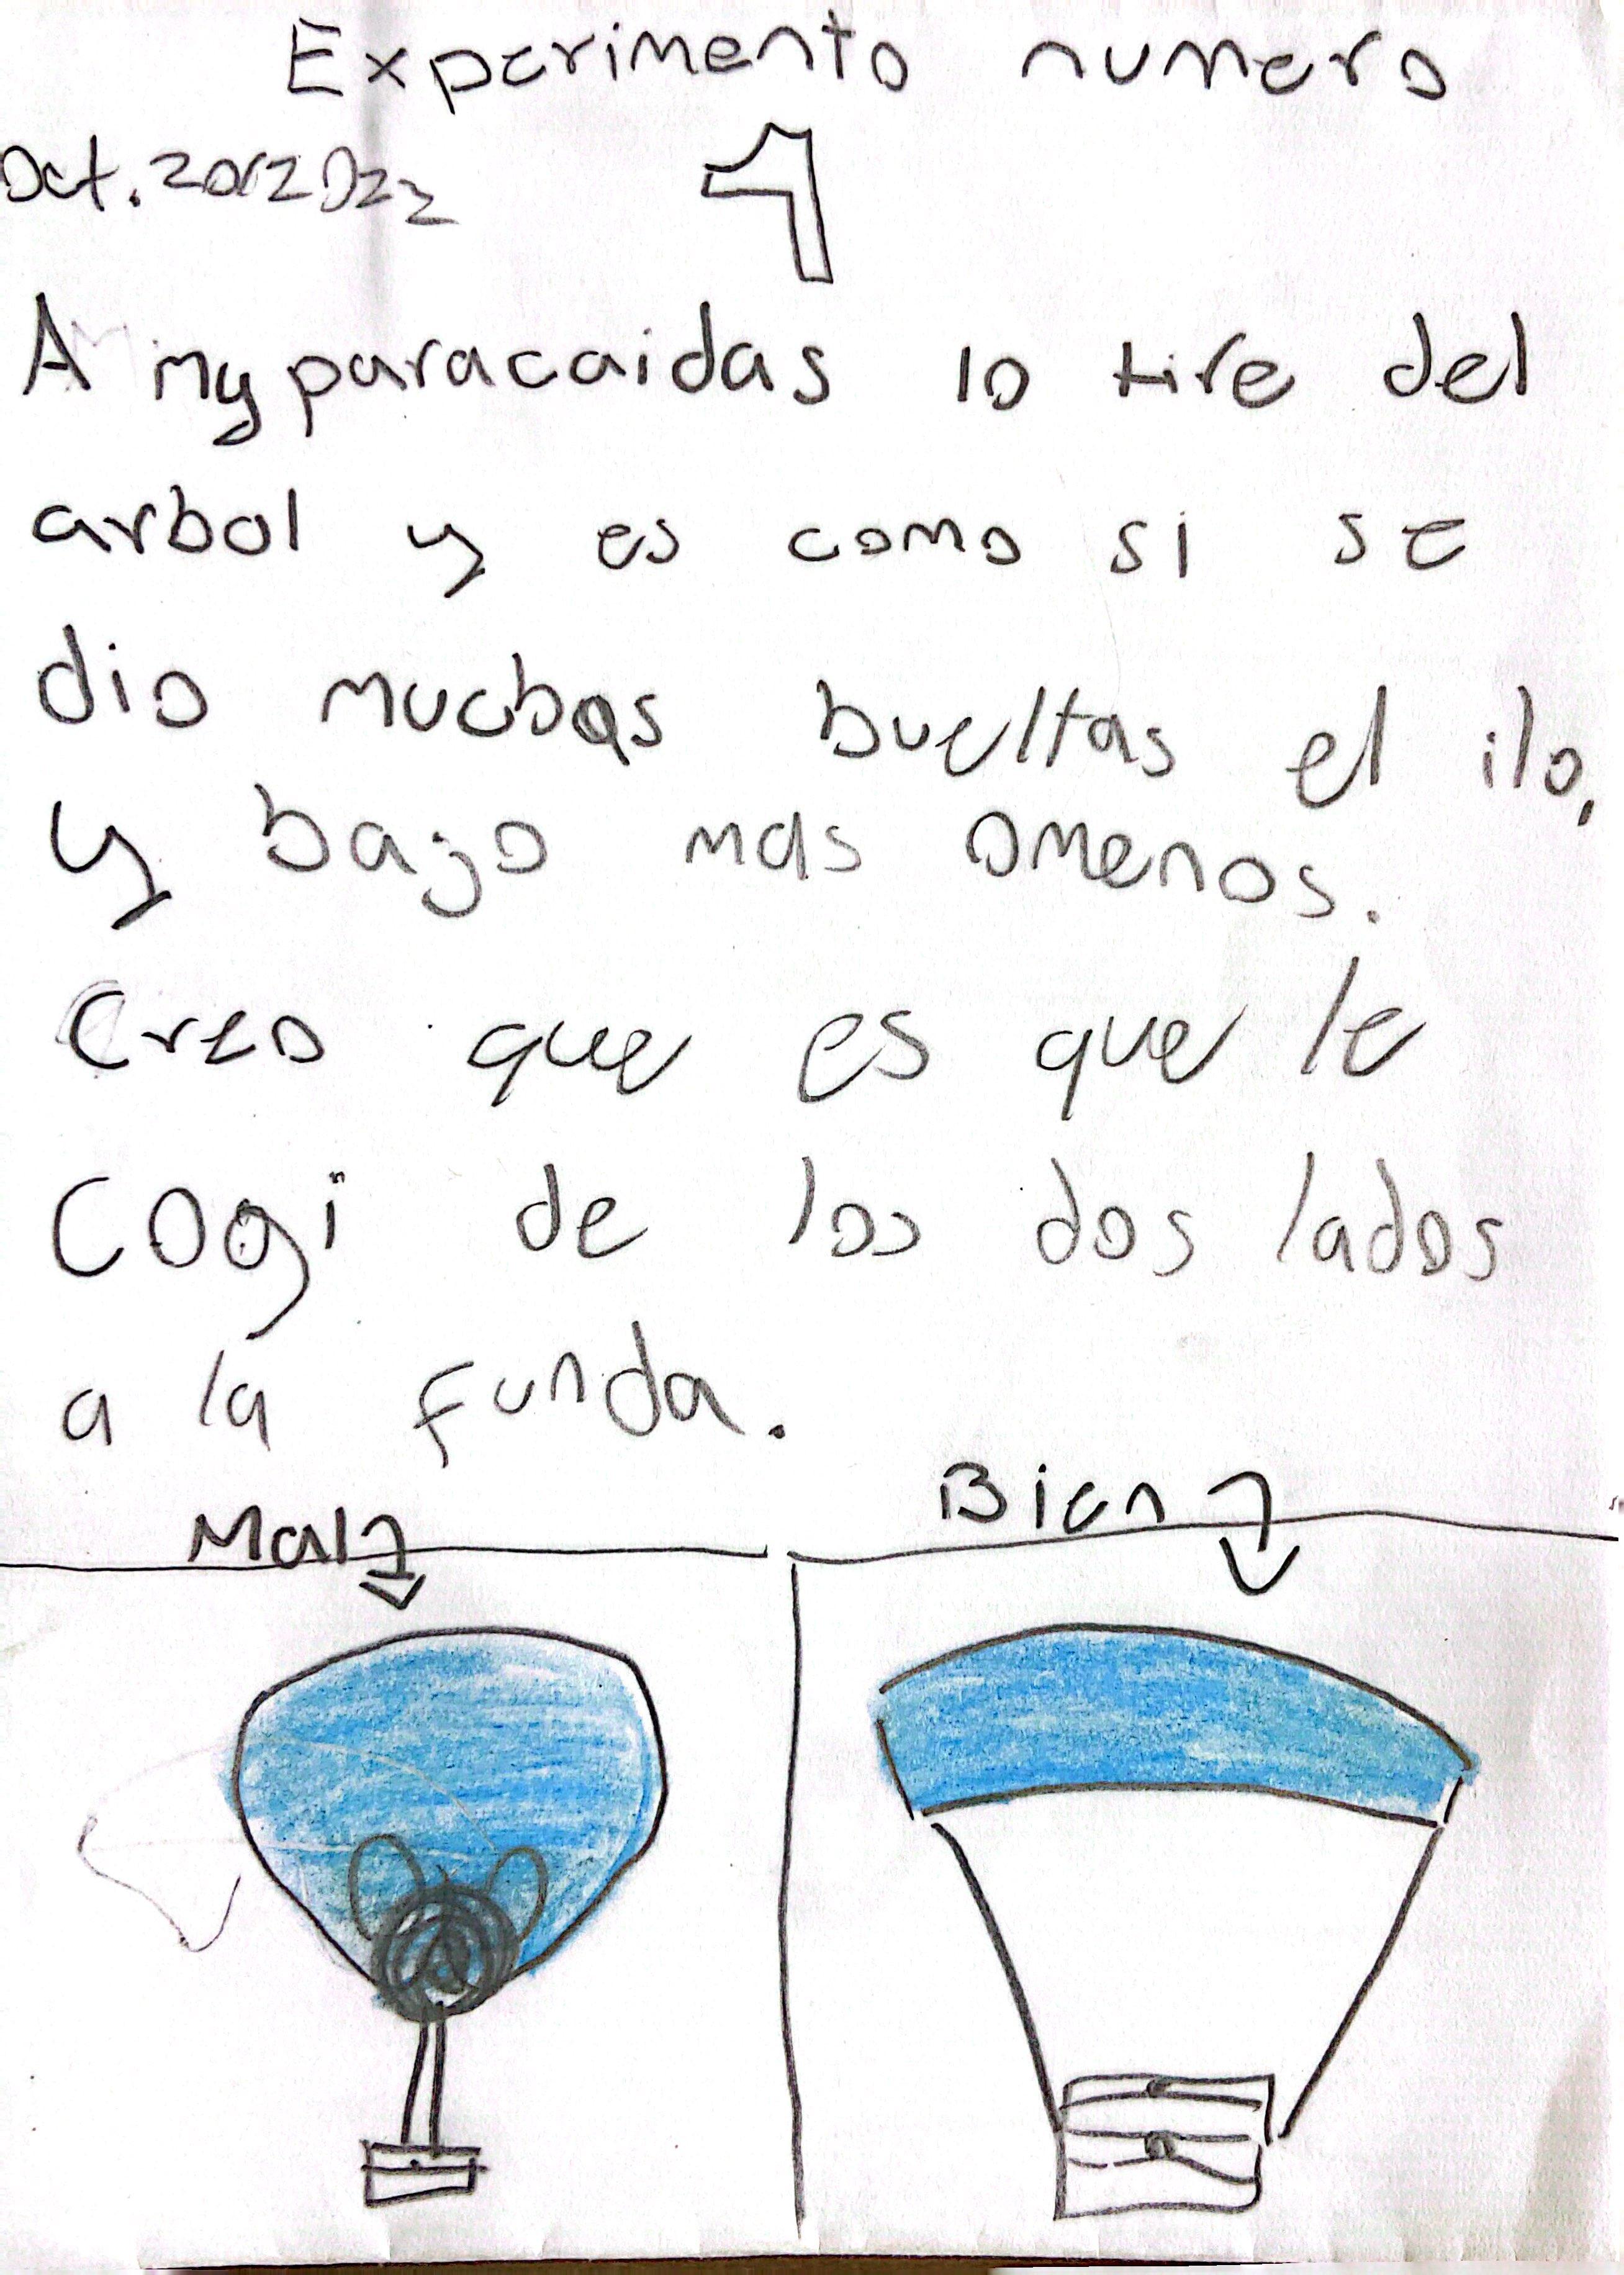 Experimento numero
1
Oct. 20/2022
A my paracaidas lo tire del
arbol y es como si se
dio muchas bueltas el ilo,
y bajo mas omenos.
Creo que es que le
cogi de los dos lados
a la funda.
Mal
Bien